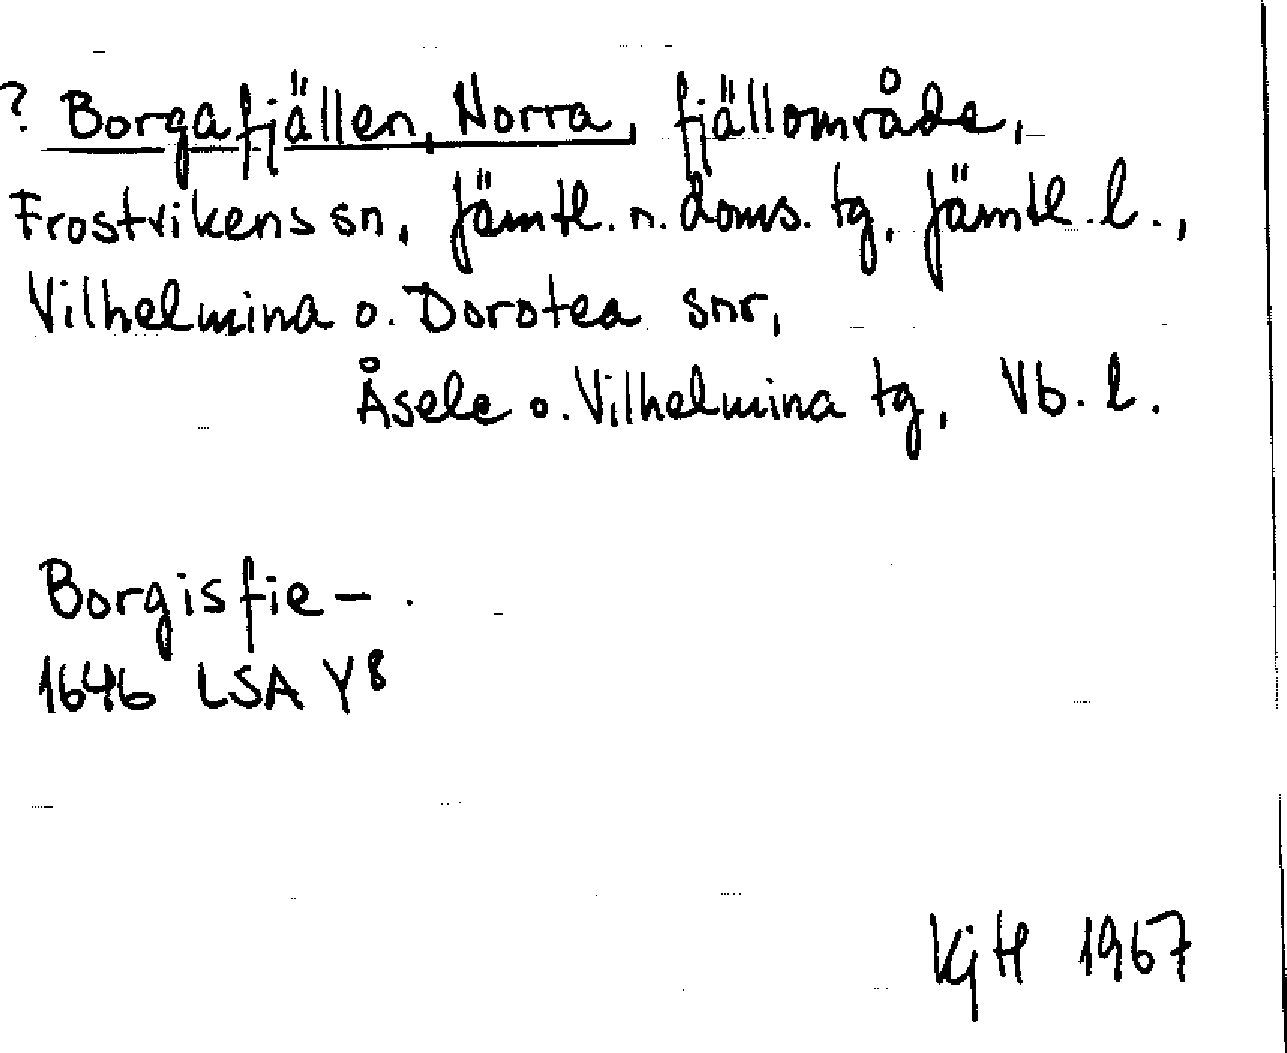 ? Borgafjällen, Norra, fjällområde,
Frostvikens sn, Jämtl. n. doms. tg, Jämtl. l.,
Vilhelmina o. Dorotea snr,
Åsele o. Vilhelmina tg, Vb. l.
Borgisfie-.
1646 LSA Y8
KjH 1967